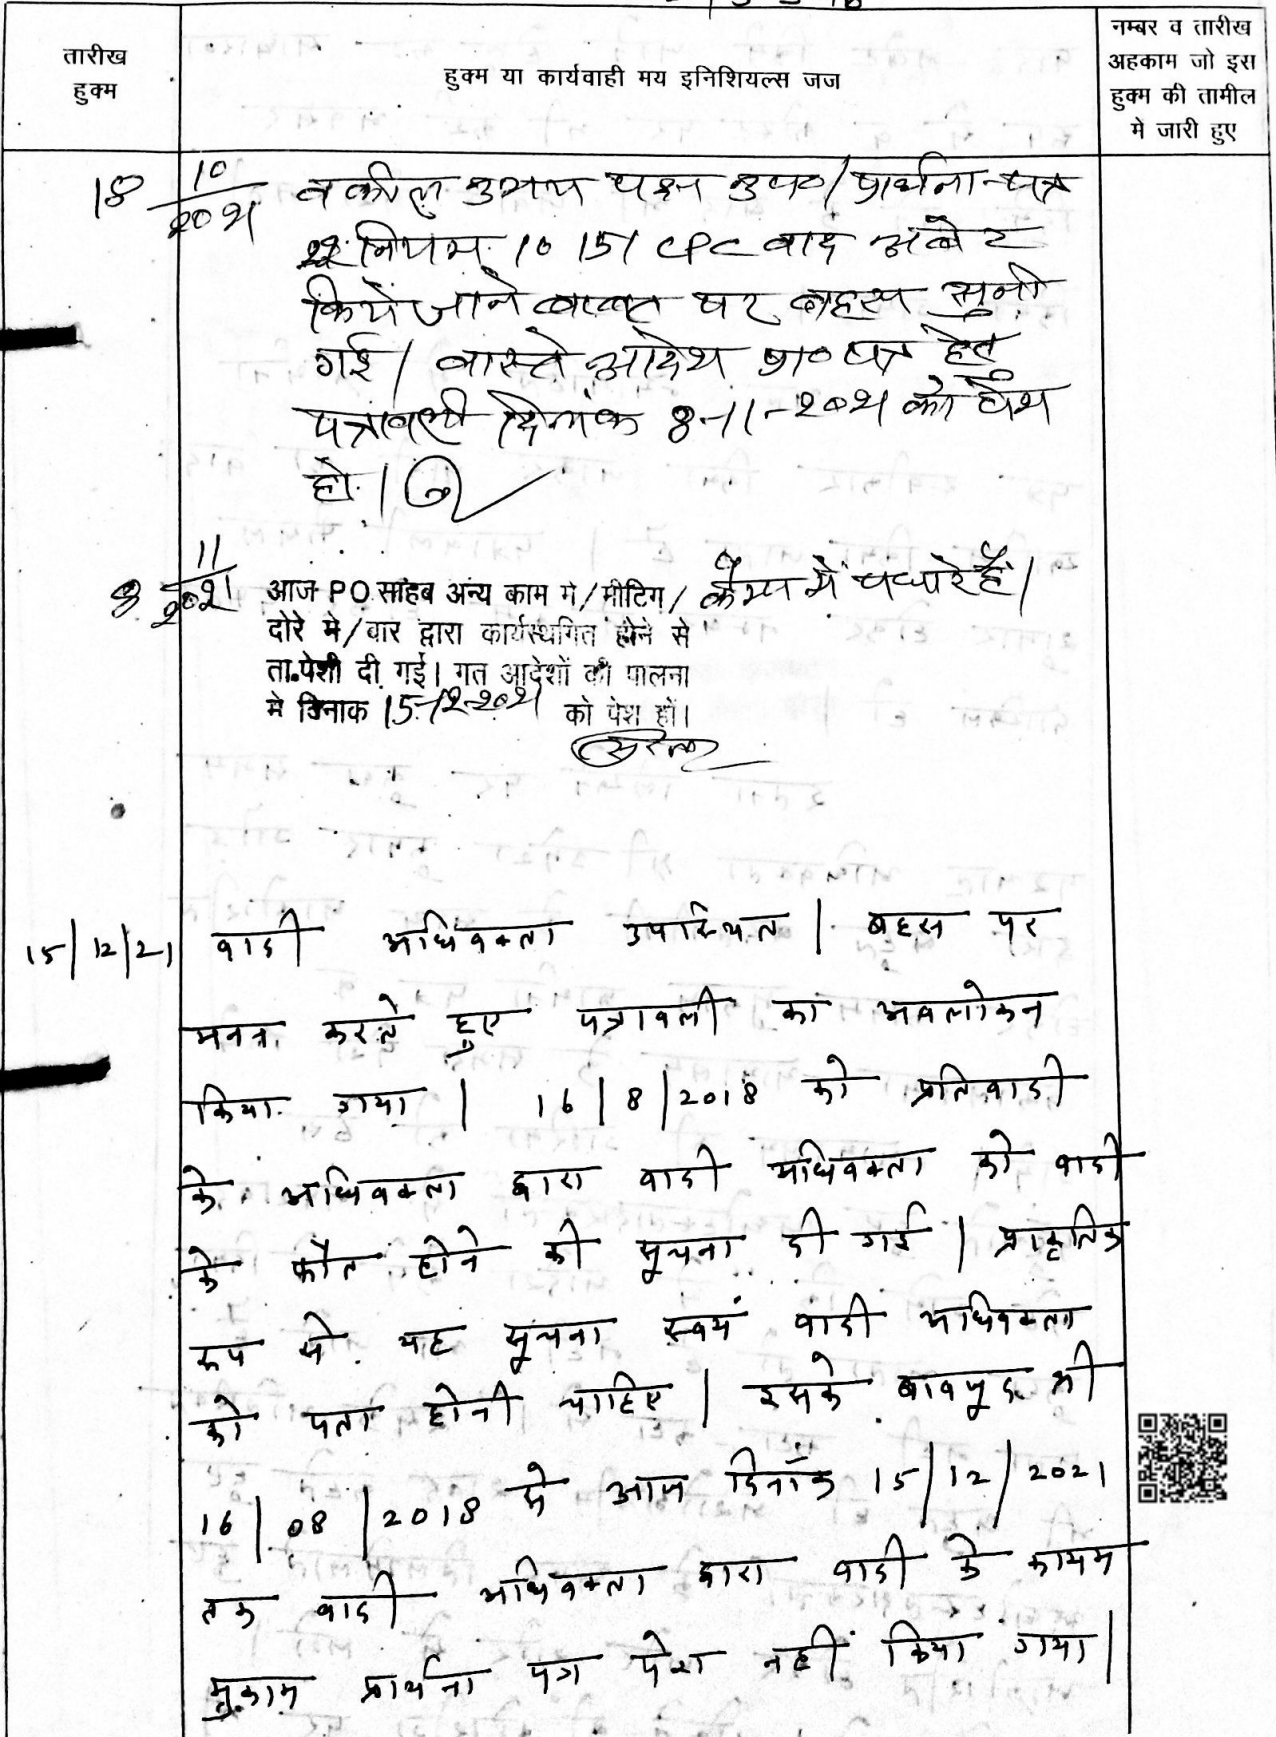 तारीख
हुक्म
हुक्म या कार्यवाही मय इनिशियल्स जज
नम्बर व तारीख
अहकाम जो इस
हुक्म की तामील
मे जारी हुए
18 10/2021 वकील उभय पक्ष उप०/प्रार्थना-पत्र
नियम 10 151 CPC वाद अबेट
किये जाने बाबत पर बहस सुनी
गई। वास्ते आदेश प्रा० पत्र हेतु
पत्रावली दिनांक 8-11-2021 को पेश
हो।
8 11/2021 आज P.O. साहब अन्य काम में/मीटिंग/ कैम्प में पधारे हैं।
दोरे मे/बार द्वारा कार्यस्थगित होने से
ता.पेशी दी गई। गत आदेशों की पालना
मे दिनाक 15-12-2021 को पेश हों।
15/12/21 वादी अधिवक्ता उपस्थित। बहस पर
मनन करते हुए पत्रावली का अवलोकन
किया गया। 16/8/2018 को प्रतिवादी
के अधिवक्ता द्वारा वादी अधिवक्ता को वादी
के फौत होने की सूचना दी गई। प्राकृतिक
रूप से यह सूचना स्वयं वादी अधिवक्ता
को पता होनी चाहिए। इसके बावजूद भी
16/08/2018 से आज दिनाँक 15/12/2021
तक वादी अधिवक्ता द्वारा वादी के कायम
मुकाम प्रार्थना पत्र पेश नहीं किया गया।